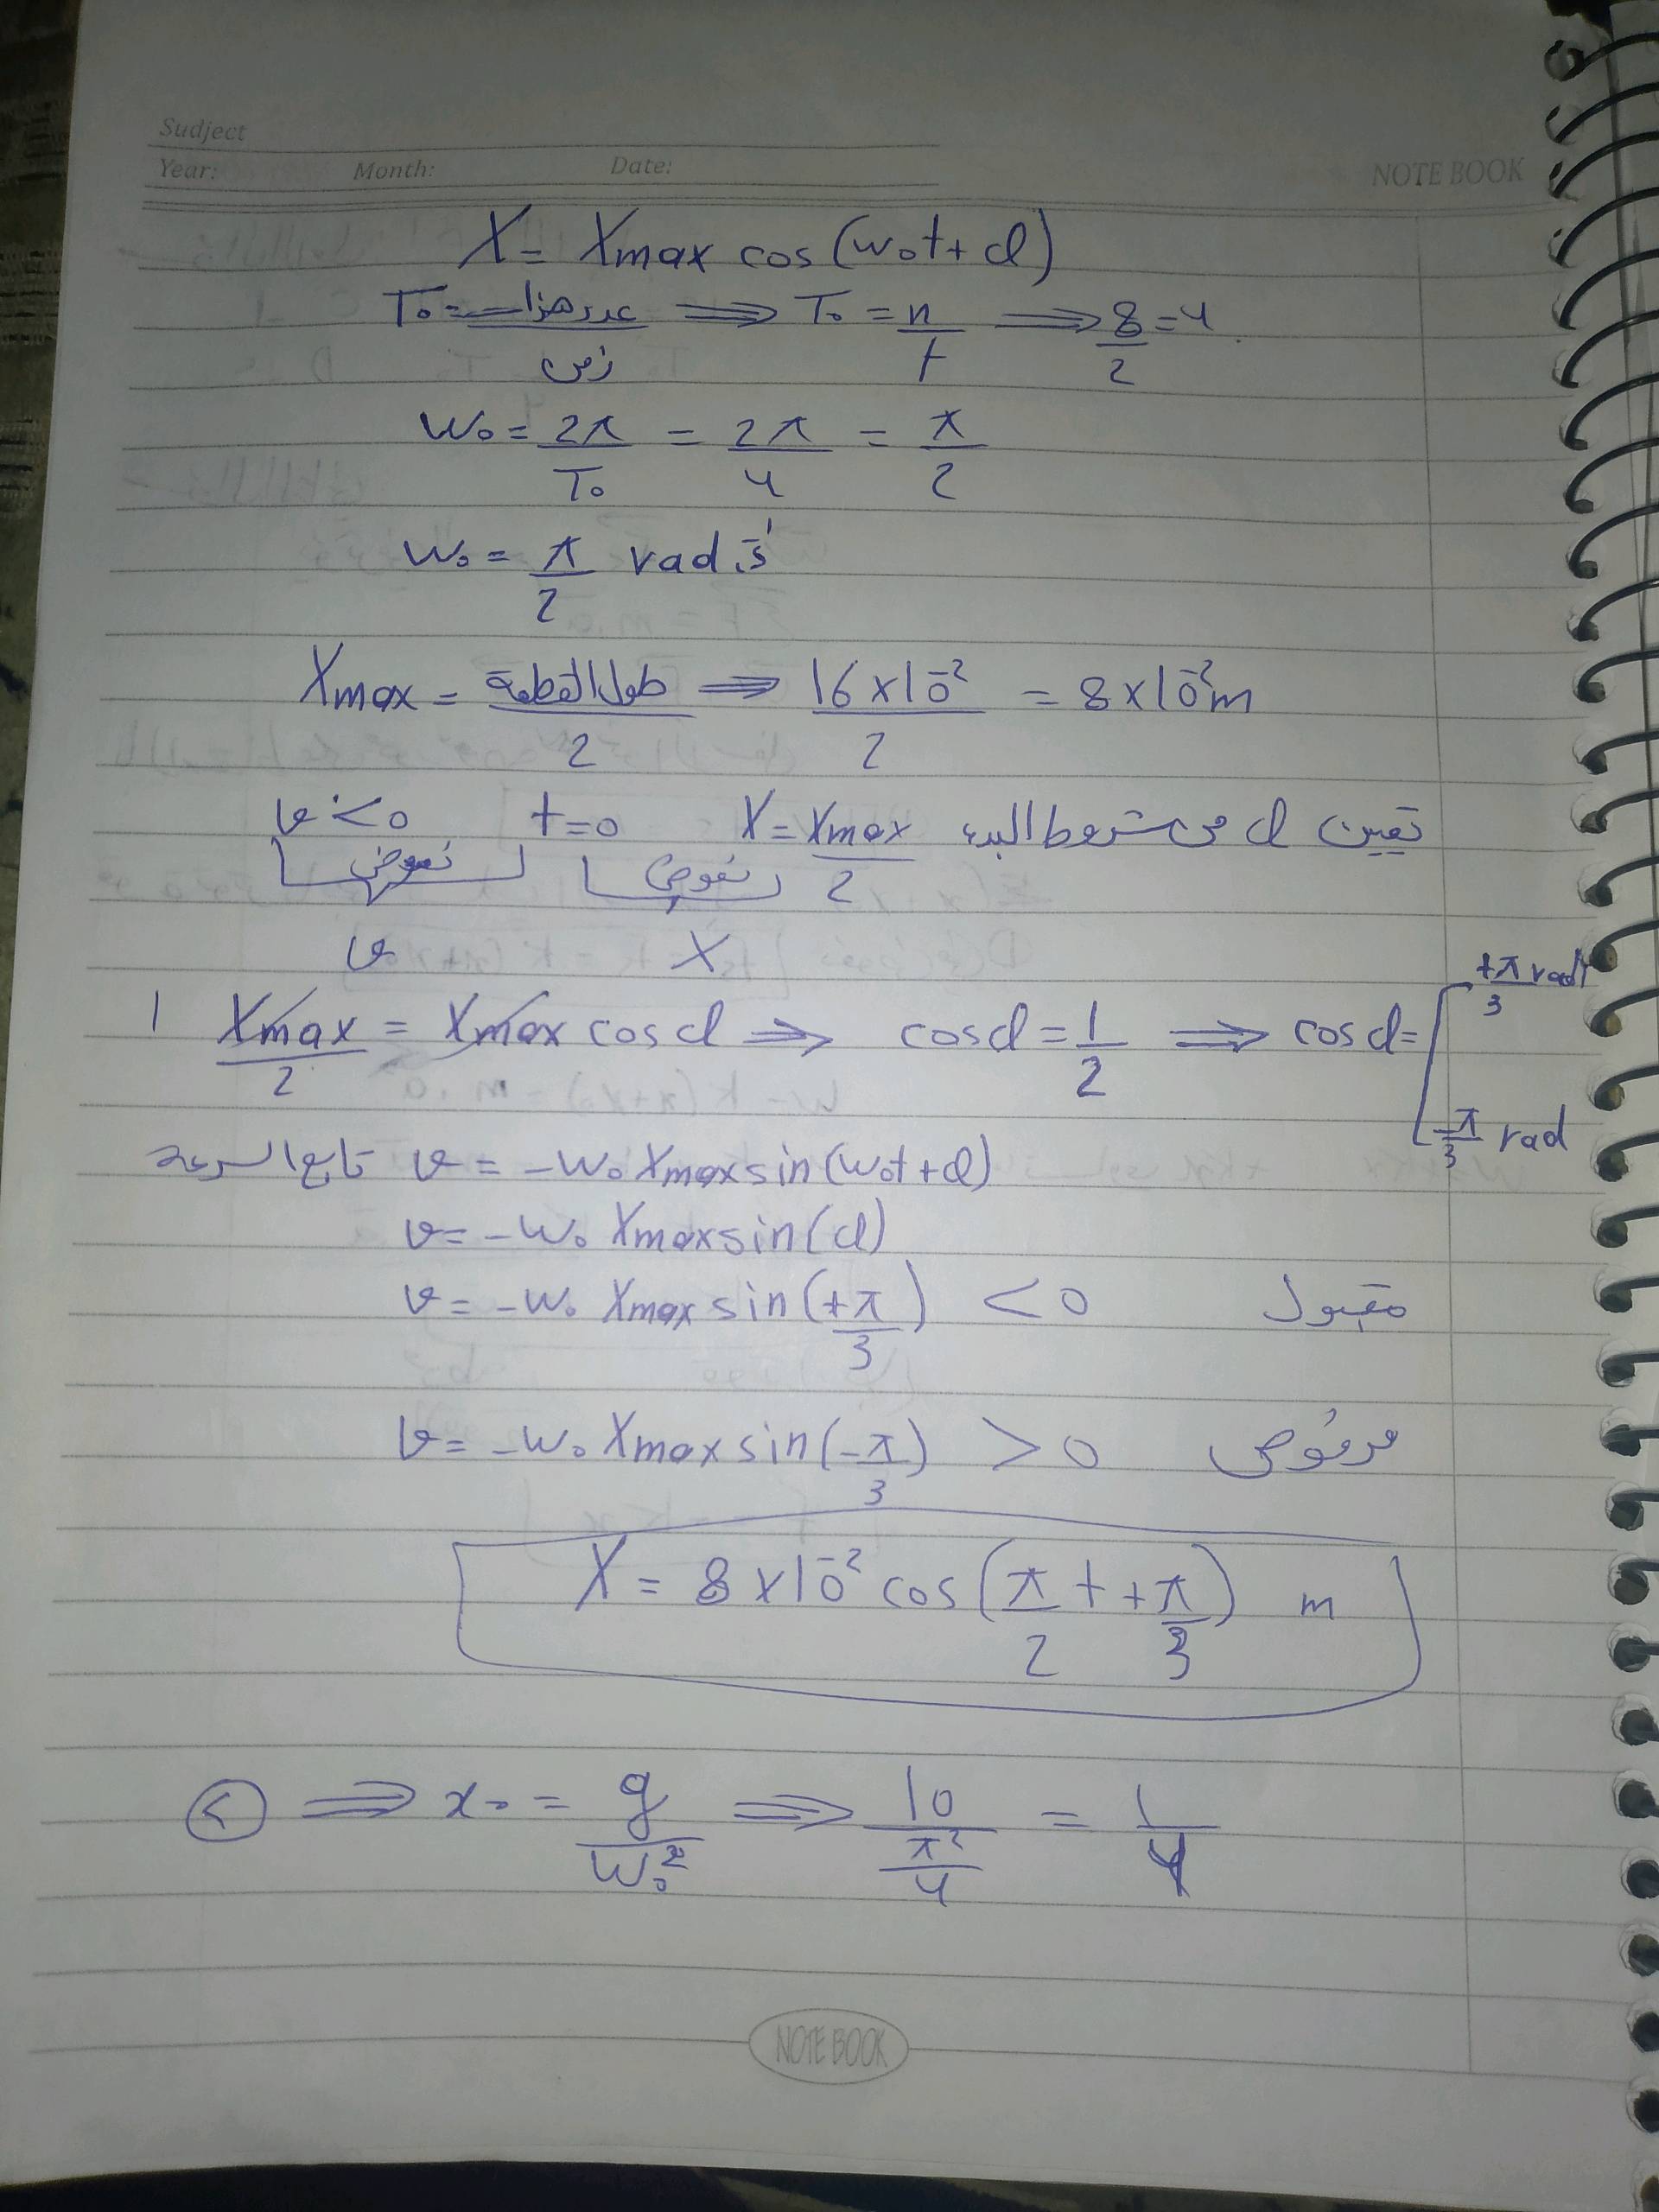 Sudject
Year: Month: Date:
NOTE BOOK
X = Xmax cos(ω₀t + φ)
T₀ = عدد هزات / زمن ⟹ T₀ = n/t ⟹ 8/2 = 4
ω₀ = 2π/T₀ = 2π/4 = π/2
ω₀ = π/2 rad.s⁻¹
Xmax = طول القطعة / 2 ⟹ 16×10⁻²/2 = 8×10⁻² m
تعيين φ من شروط البدء X = Xmax/2 t=0 v<0
نعوض نعوض
v X
1 Xmax/2 = Xmax cos φ ⟹ cos φ = 1/2 ⟹ cos φ = +π/3 rad
-π/3 rad
تابع السرعة v = -ω₀ Xmax sin(ω₀t + φ)
v = -ω₀ Xmax sin(φ)
v = -ω₀ Xmax sin(+π/3) < 0 مقبول
v = -ω₀ Xmax sin(-π/3) > 0 مرفوض
X = 8×10⁻² cos(π/2 t + π/3) m
⟹ x₀ = g/ω₀² ⟹ 10/(π²/4) = 1/4
NOTE BOOK